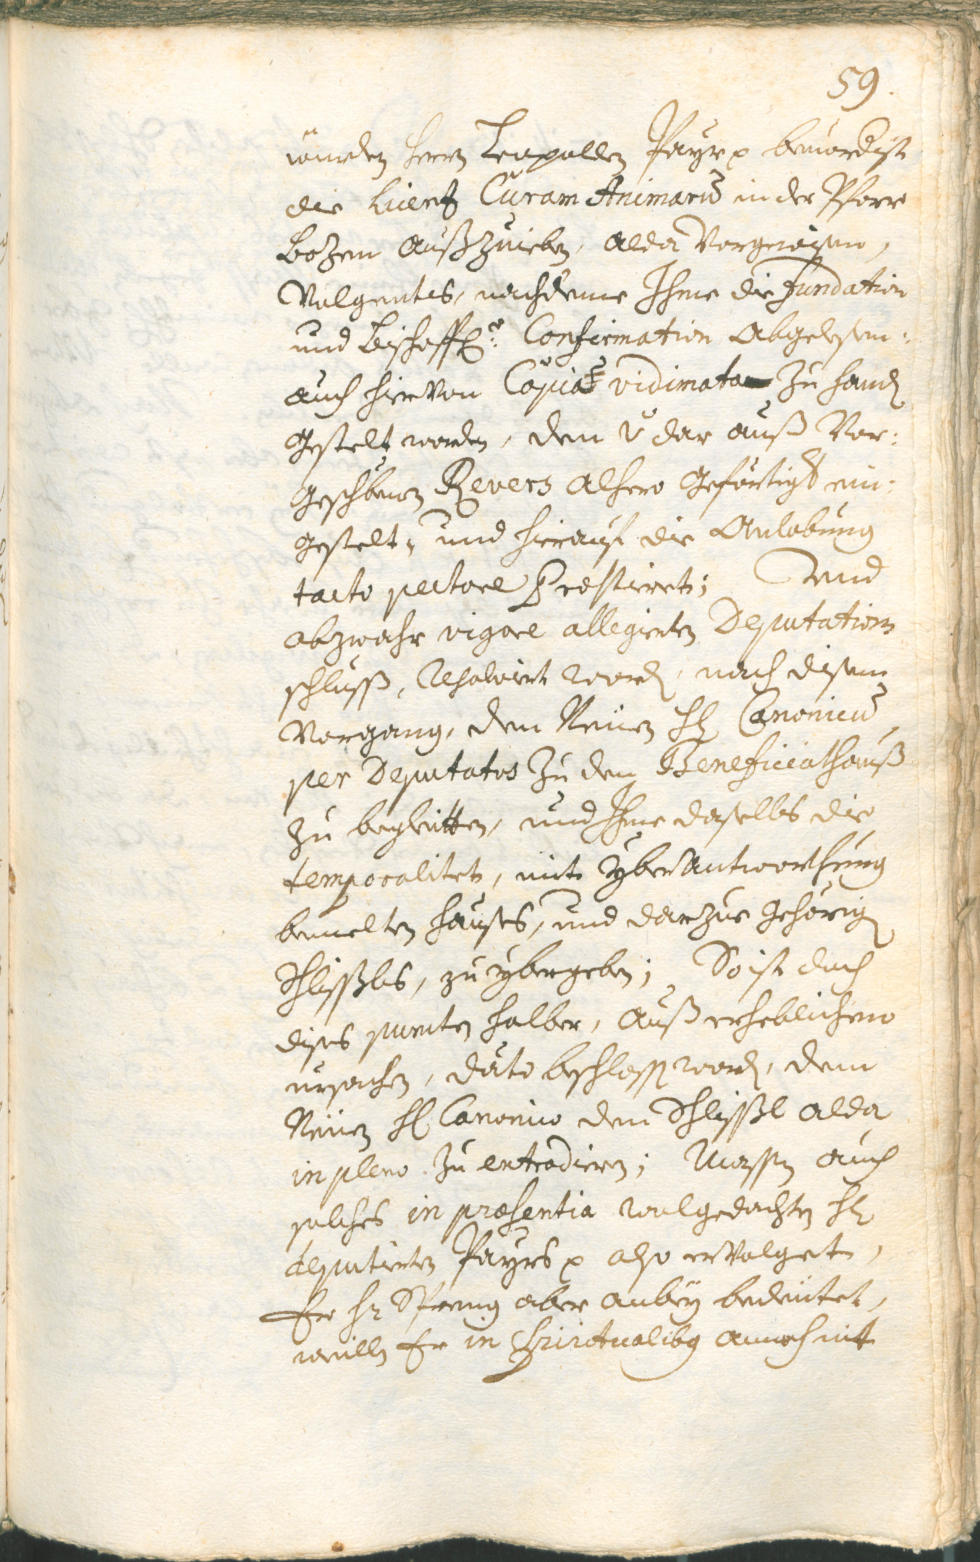 59.
wurden herrn Leopolden Payr p bevordist
die licenz Curam Animarū in der Pfarr
Bozen außzuieben, alda Vorgewisen,
Volgentes, nachdeme Ihme die fundation
und Bischoffl: Confirmation abgelesen:
auch hiervon Copia vidimata zu handen
gestelt worden, den daraus Vor:
geschribenen Revers alhero geförtigt ein:
gestelt, und hierauf die Anlobung
tacto pectore præstieret; Und
obzwahr vigore allegierten Deputations
schluß, resolviert worden, nach disem
Vorgang, den Neuen H: Canonicū
per Deputatos zu dem Beneficiathauß
zu begleitten, und Ihme daselbs die
temporalitet, mit yberantworthung
bemelten hauses, und darzue gehörigen
Schlissls, zu ybergeben; So ist doch
dises puncten halber, auß erheblichen
ursachen, dato beschlossen worden, dem
Neuen H: Canonico den Schlissl alda
in pleno zu extradieren; Massen auch
solches in præsentia wolgedachten H:
deputierten Payrs p also ervolget,
Er H: Spreng aber anbey bedeutet,
weillen Er in Spiritualibus annoch nit